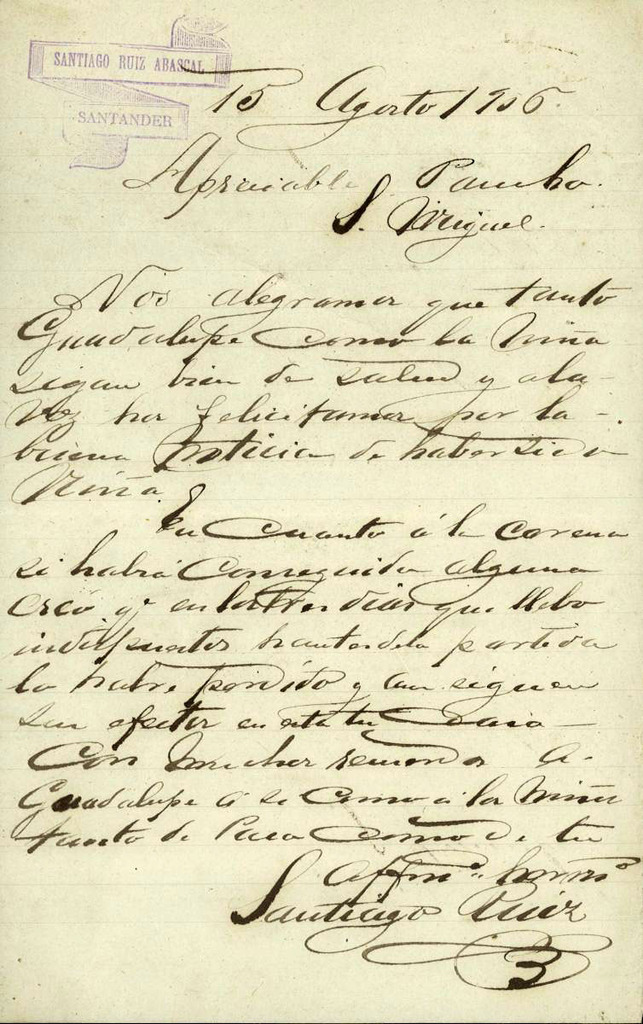 SANTIAGO RUIZ ABASCAL
SANTANDER
15 Agosto 1906.
Apreciable Pancho.
S. Miguel.
Nos alegramos que tanto
Guadalupe como la niña
sigan bien de salud y a la
vez nos felicitamos por la
buena noticia de haber sido
Niña.
En cuanto á la
si habia conseguido alguna
creo q. en los tres dias que llebo
partida
la habre perdido y aun siguen
sus efectos en esta tu Casa
Con muchos recuerdos a
Guadalupe a si como a la Niña
tanto de Paca como de tu
affmo. hermo.
Santiago Ruiz